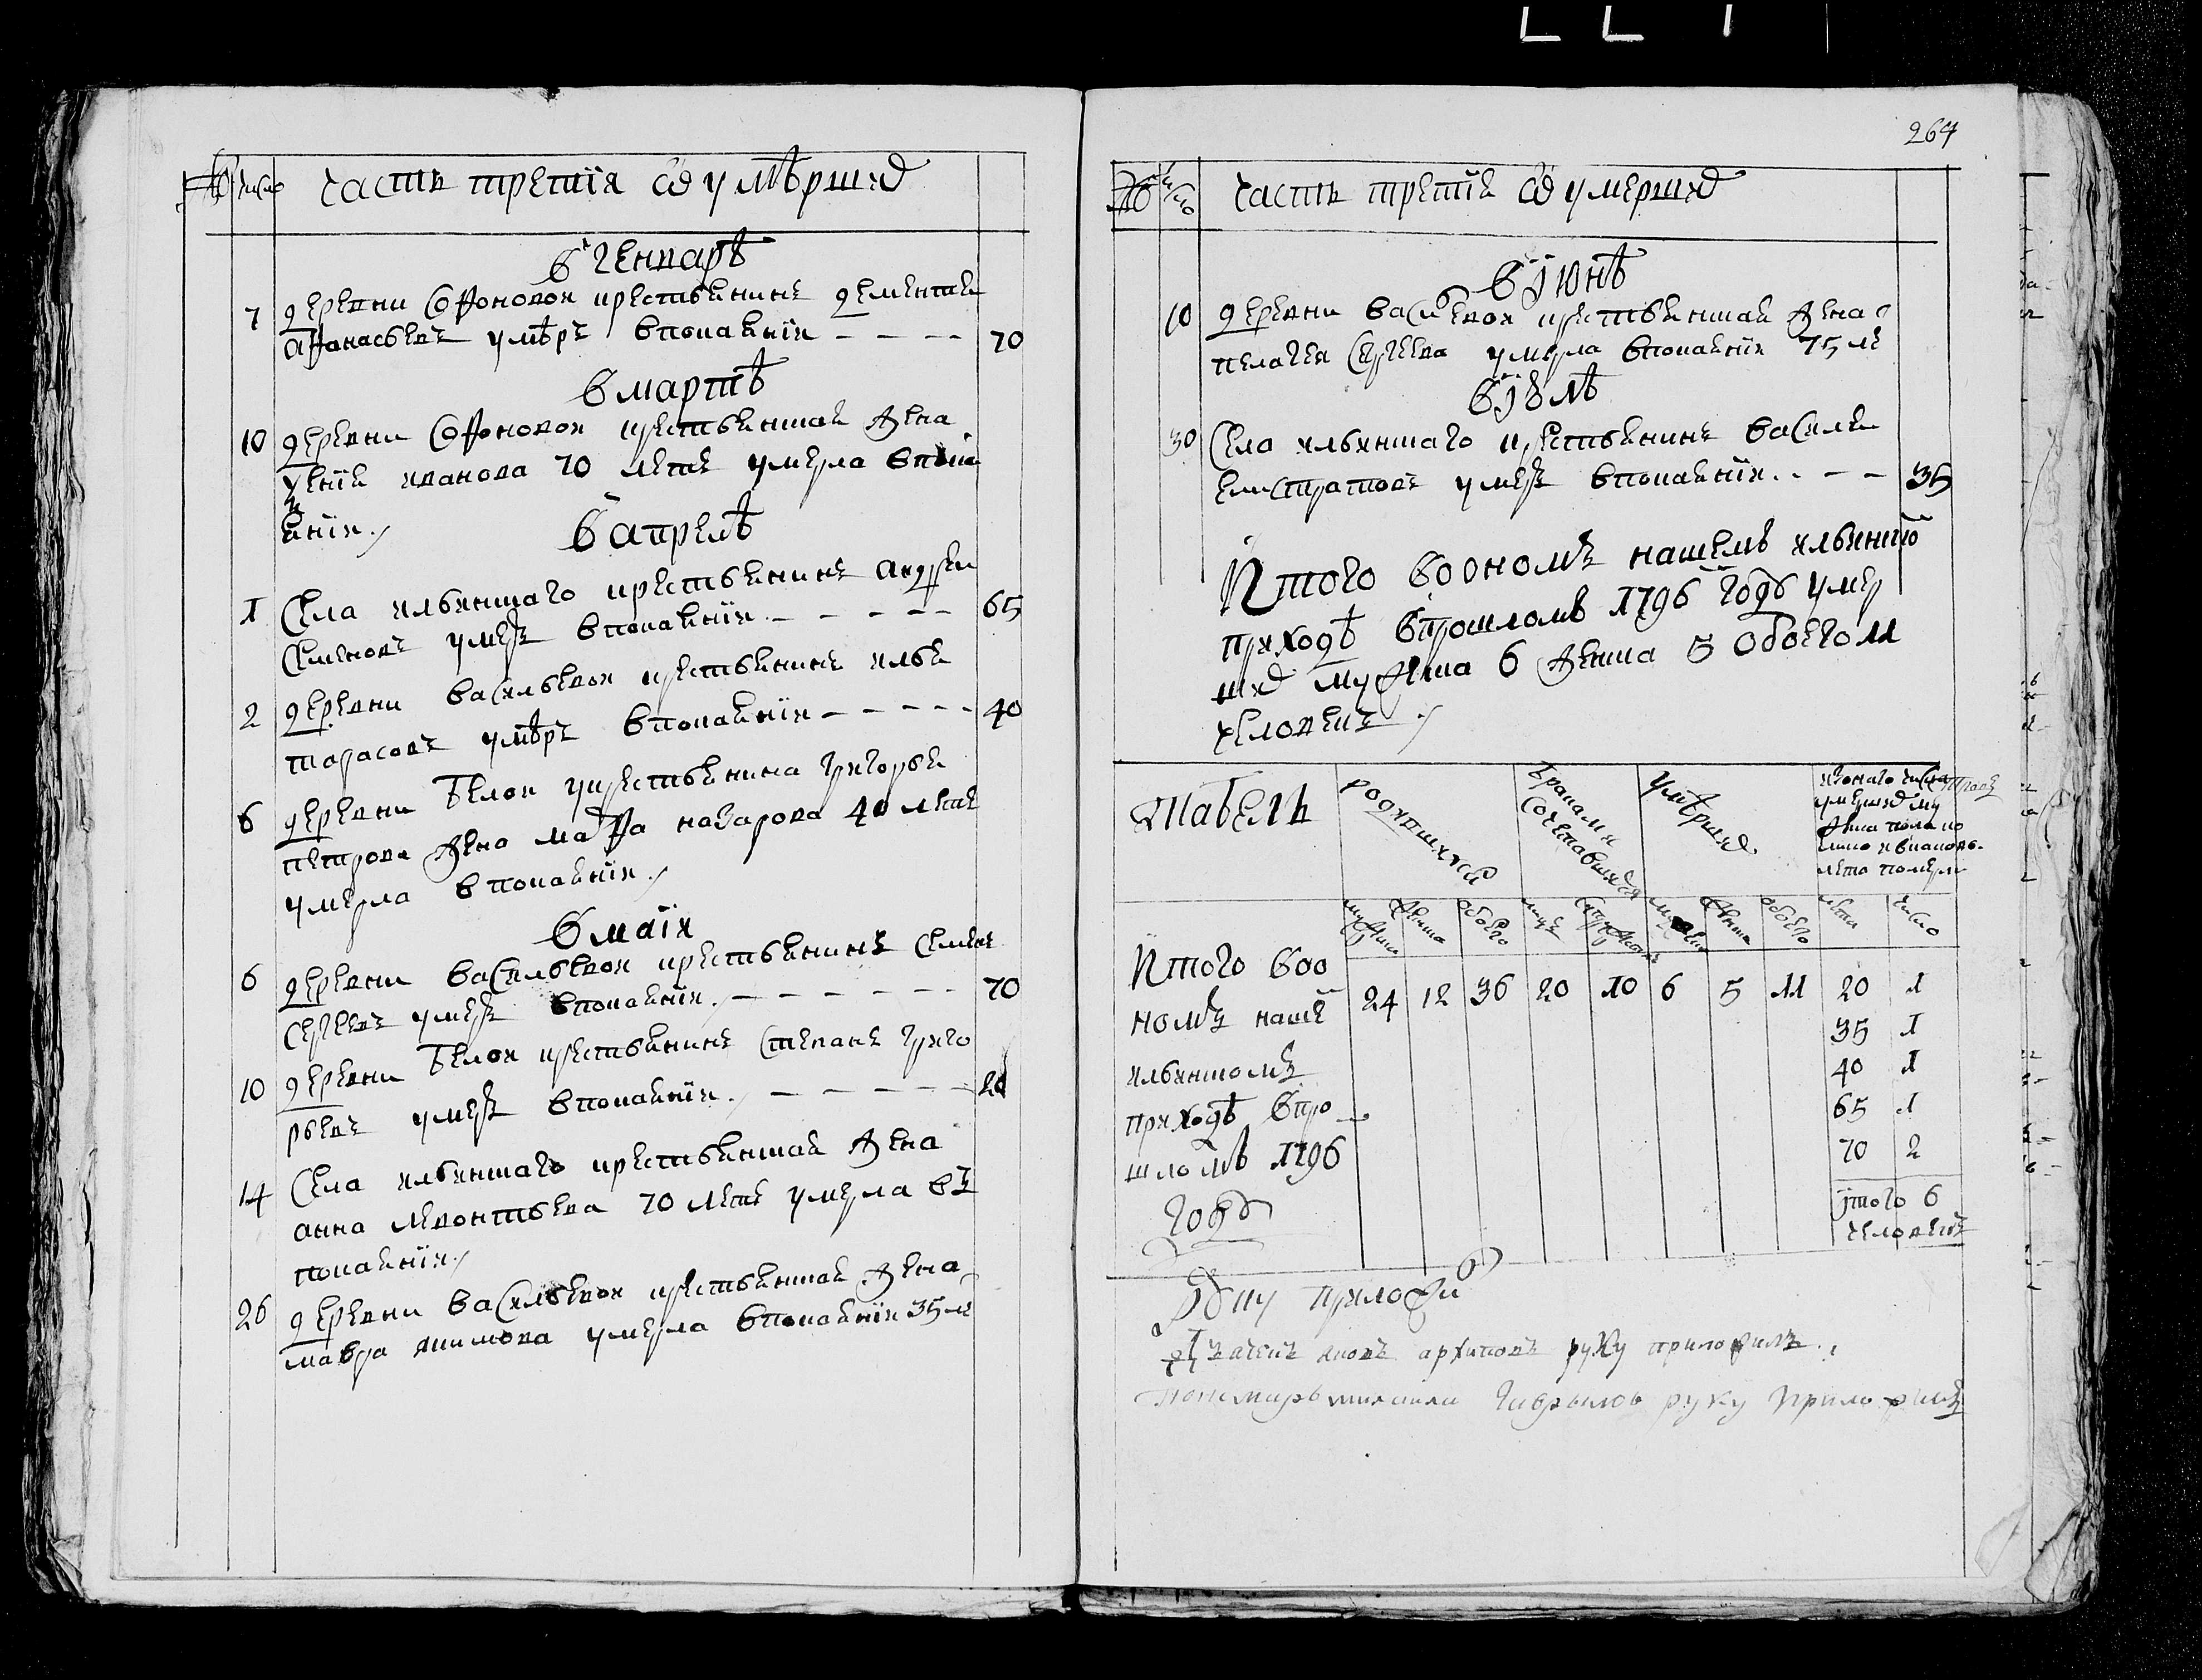 264
№ число часть третїя Ѡ умѣршихъ
в генварѣ
7 деревни Софоновои крестьянинъ дементеи
афанасьевъ умѣръ впокаянїи – – – – 70
в мартѣ
10 деревни Софоновои крестьянская жена
иванова 70 летъ умерла впока
янїи
в апрелѣ
1 Села ильинскаго крестьянинъ андреи
Семеновъ умеръ впокаянїи – – – – – 65
2 деревни васильевои крестьянинъ илья
тарасовъ умѣръ впокаянїи – – – – – 40
6 деревни Белои крестьянина григорья
петрова жена марфа назарова 40 летъ
умерла впокаянїи
в маїи
6 деревни васильевои крестьянинъ Семенъ
Сергеевъ умеръ впокаянїи – – – – – – 70
10 деревни Белои крестьянинъ Степанъ григо
рьевъ умеръ впокаянїи – – – – – – 20
14 Села ильинскаго крестьянская жена
анна леонтьева 70 летъ умерла въ
покаянїи
26 деревни васильевои крестьянская жена
мавра екимова умерла впокаянїи 35 ле
№ число часть третїя Ѡ умершихъ
в їюнѣ
10 деревни василевои крестьянская жена
пелагея Сергеева умерла впокаянїи 75 ле
в їюлѣ
30 Села ильинскаго крестьянинъ василеи
елистратовъ умеръ впокаянїи – – – 35
Итого во ономъ нашемъ ильинско
приходѣ впрошломъ 1796 годѣ умер
шихъ мужеска 6 женска 5 обоего 11
человекъ
Табель
родившихся
браками сочетавшихся
умѣршихъ
мужеска женска обоего мужъ женска обоего лета число
Итого воо
номъ наше
ильинскомъ
приходѣ впро
шломъ 1796
годѣ
24 12 36 20 10 6 5 11 20 1
35 1
40 1
65 1
70 2
їтого 6
человекъ
руку приложи
дьячекъ архиповъ руку приложилъ
пономарь михаила гаврыловъ руку приложилъ